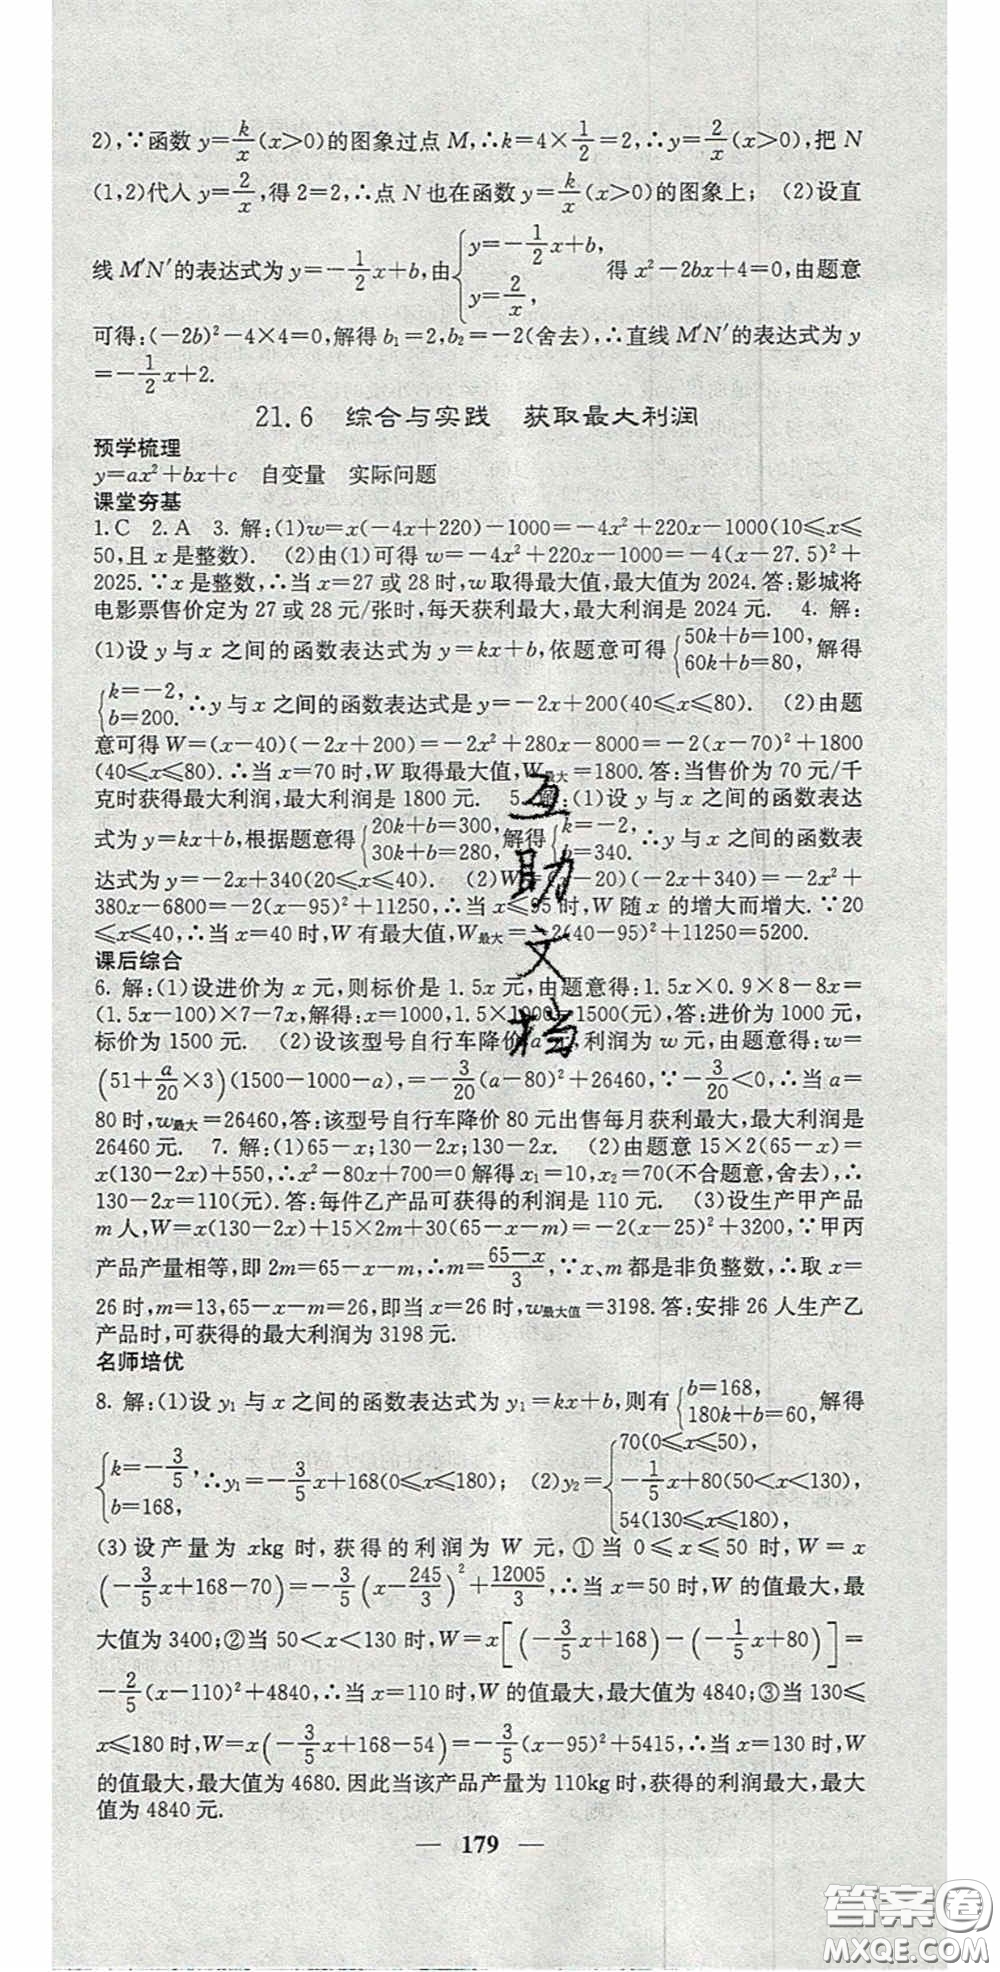 2),∵函数 y=k/x(x>0)的图象过点 M,∴k=4×1/2=2,∴y=2/x(x>0),把 N
(1,2)代入 y=2/x,得 2=2,∴点 N 也在函数 y=k/x(x>0)的图象上; (2)设直
线 M′N′的表达式为 y=-1/2x+b,由{y=-1/2x+b, y=2/x, 得 x²-2bx+4=0,由题意
可得:(-2b)²-4×4=0,解得 b₁=2,b₂=-2(舍去),∴直线 M′N′的表达式为 y
=-1/2x+2.
21.6 综合与实践 获取最大利润
预学梳理
y=ax²+bx+c 自变量 实际问题
课堂夯基
1.C 2.A 3. 解:(1)w=x(-4x+220)-1000=-4x²+220x-1000(10≤x≤
50,且 x 是整数). (2)由(1)可得 w=-4x²+220x-1000=-4(x-27.5)²+
2025.∵x 是整数,∴当 x=27 或 28 时,w 取得最大值,最大值为 2024.答:影城将
电影票售价定为 27 或 28 元/张时,每天获利最大,最大利润是 2024 元. 4. 解:
(1)设 y 与 x 之间的函数表达式为 y=kx+b,依题意可得{50k+b=100, 60k+b=80, 解得
{k=-2, b=200. ∴y 与 x 之间的函数表达式是 y=-2x+200(40≤x≤80). (2)由题
意可得 W=(x-40)(-2x+200)=-2x²+280x-8000=-2(x-70)²+1800
(40≤x≤80).∴当 x=70 时,W 取得最大值,W最大=1800.答:当售价为 70 元/千
克时获得最大利润,最大利润是 1800 元. 5. 解:(1)设 y 与 x 之间的函数表达
式为 y=kx+b,根据题意得{20k+b=300, 30k+b=280, 解得{k=-2, b=340. ∴y 与 x 之间的函数表
达式为 y=-2x+340(20≤x≤40). (2)W=(x-20)(-2x+340)=-2x²+
380x-6800=-2(x-95)²+11250,∴当 x≤95 时,W 随 x 的增大而增大.∵20
≤x≤40,∴当 x=40 时,W 有最大值,W最大=-2(40-95)²+11250=5200.
课后综合
6. 解:(1)设进价为 x 元,则标价是 1.5x 元,由题意得:1.5x×0.9×8-8x=
(1.5x-100)×7-7x,解得:x=1000,1.5×1000=1500(元),答:进价为 1000 元,
标价为 1500 元. (2)设该型号自行车降价 a 元,利润为 w 元,由题意得:w=
(51+a/20×3)(1500-1000-a),=-3/20(a-80)²+26460,∵-3/20<0,∴当 a=
80 时,w最大=26460,答:该型号自行车降价 80 元出售每月获利最大,最大利润是
26460 元. 7. 解:(1)65-x;130-2x;130-2x. (2)由题意 15×2(65-x)=
x(130-2x)+550,∴x²-80x+700=0 解得 x₁=10,x₂=70(不合题意,舍去),∴
130-2x=110(元).答:每件乙产品可获得的利润是 110 元. (3)设生产甲产品
m 人,W=x(130-2x)+15×2m+30(65-x-m)=-2(x-25)²+3200,∵甲丙
产品产量相等,即 2m=65-x-m,∴m=65-x/3,∵x、m 都是非负整数,∴取 x=
26 时,m=13,65-x-m=26,即当 x=26 时,w最大值=3198.答:安排 26 人生产乙
产品时,可获得的最大利润为 3198 元.
名师培优
8. 解:(1)设 y₁ 与 x 之间的函数表达式为 y₁=kx+b,则有{b=168, 180k+b=60, 解得
{k=-3/5, b=168, ∴y₁=-3/5x+168(0≤x≤180); (2)y₂={70(0≤x≤50), -1/5x+80(50<x<130), 54(130≤x≤180),
(3)设产量为 xkg 时,获得的利润为 W 元,①当 0≤x≤50 时,W=x
(-3/5x+168-70)=-3/5(x-245/3)²+12005/3,∴当 x=50 时,W 的值最大,最
大值为 3400;②当 50<x<130 时,W=x[(-3/5x+168)-(-1/5x+80)]=
-2/5(x-110)²+4840,∴当 x=110 时,W 的值最大,最大值为 4840;③当 130≤
x≤180 时,W=x(-3/5x+168-54)=-3/5(x-95)²+5415,∴当 x=130 时,W
的值最大,最大值为 4680.因此当该产品产量为 110kg 时,获得的利润最大,最大
值为 4840 元.
— 179 —
互助文档
答案圈
MXQE.COM